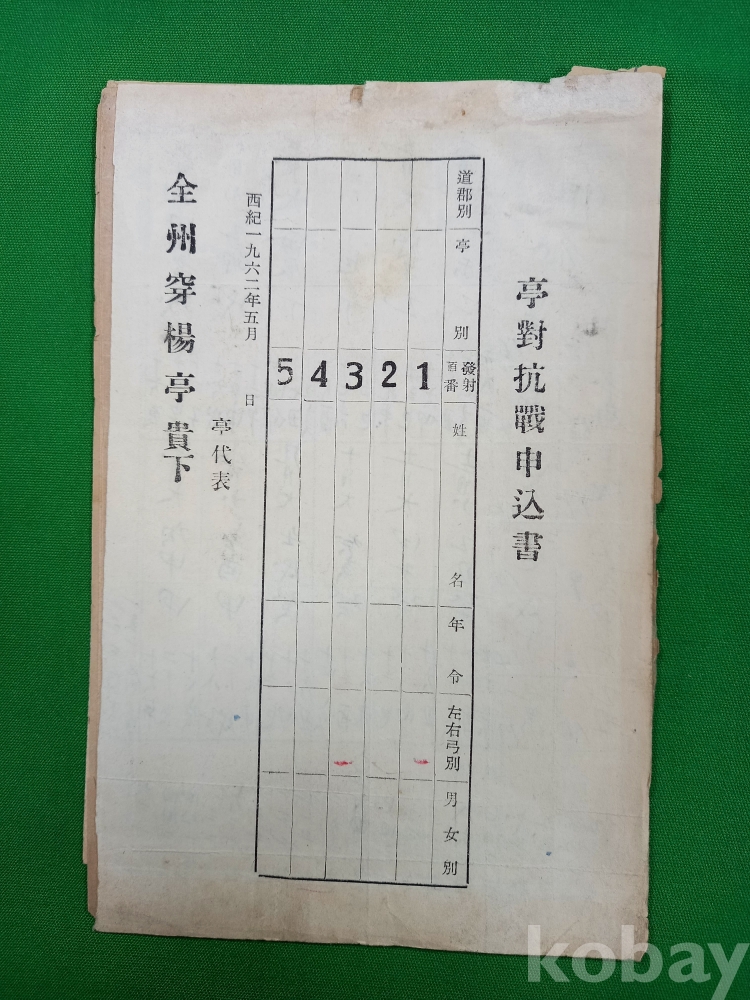 亭對抗戰申込書
道郡別 亭別 發射百番 姓名 年令 左右弓別 男女別
1
2
3
4
5
西紀一九六二年五月 日
亭代表
全州穿楊亭貴下
kobay